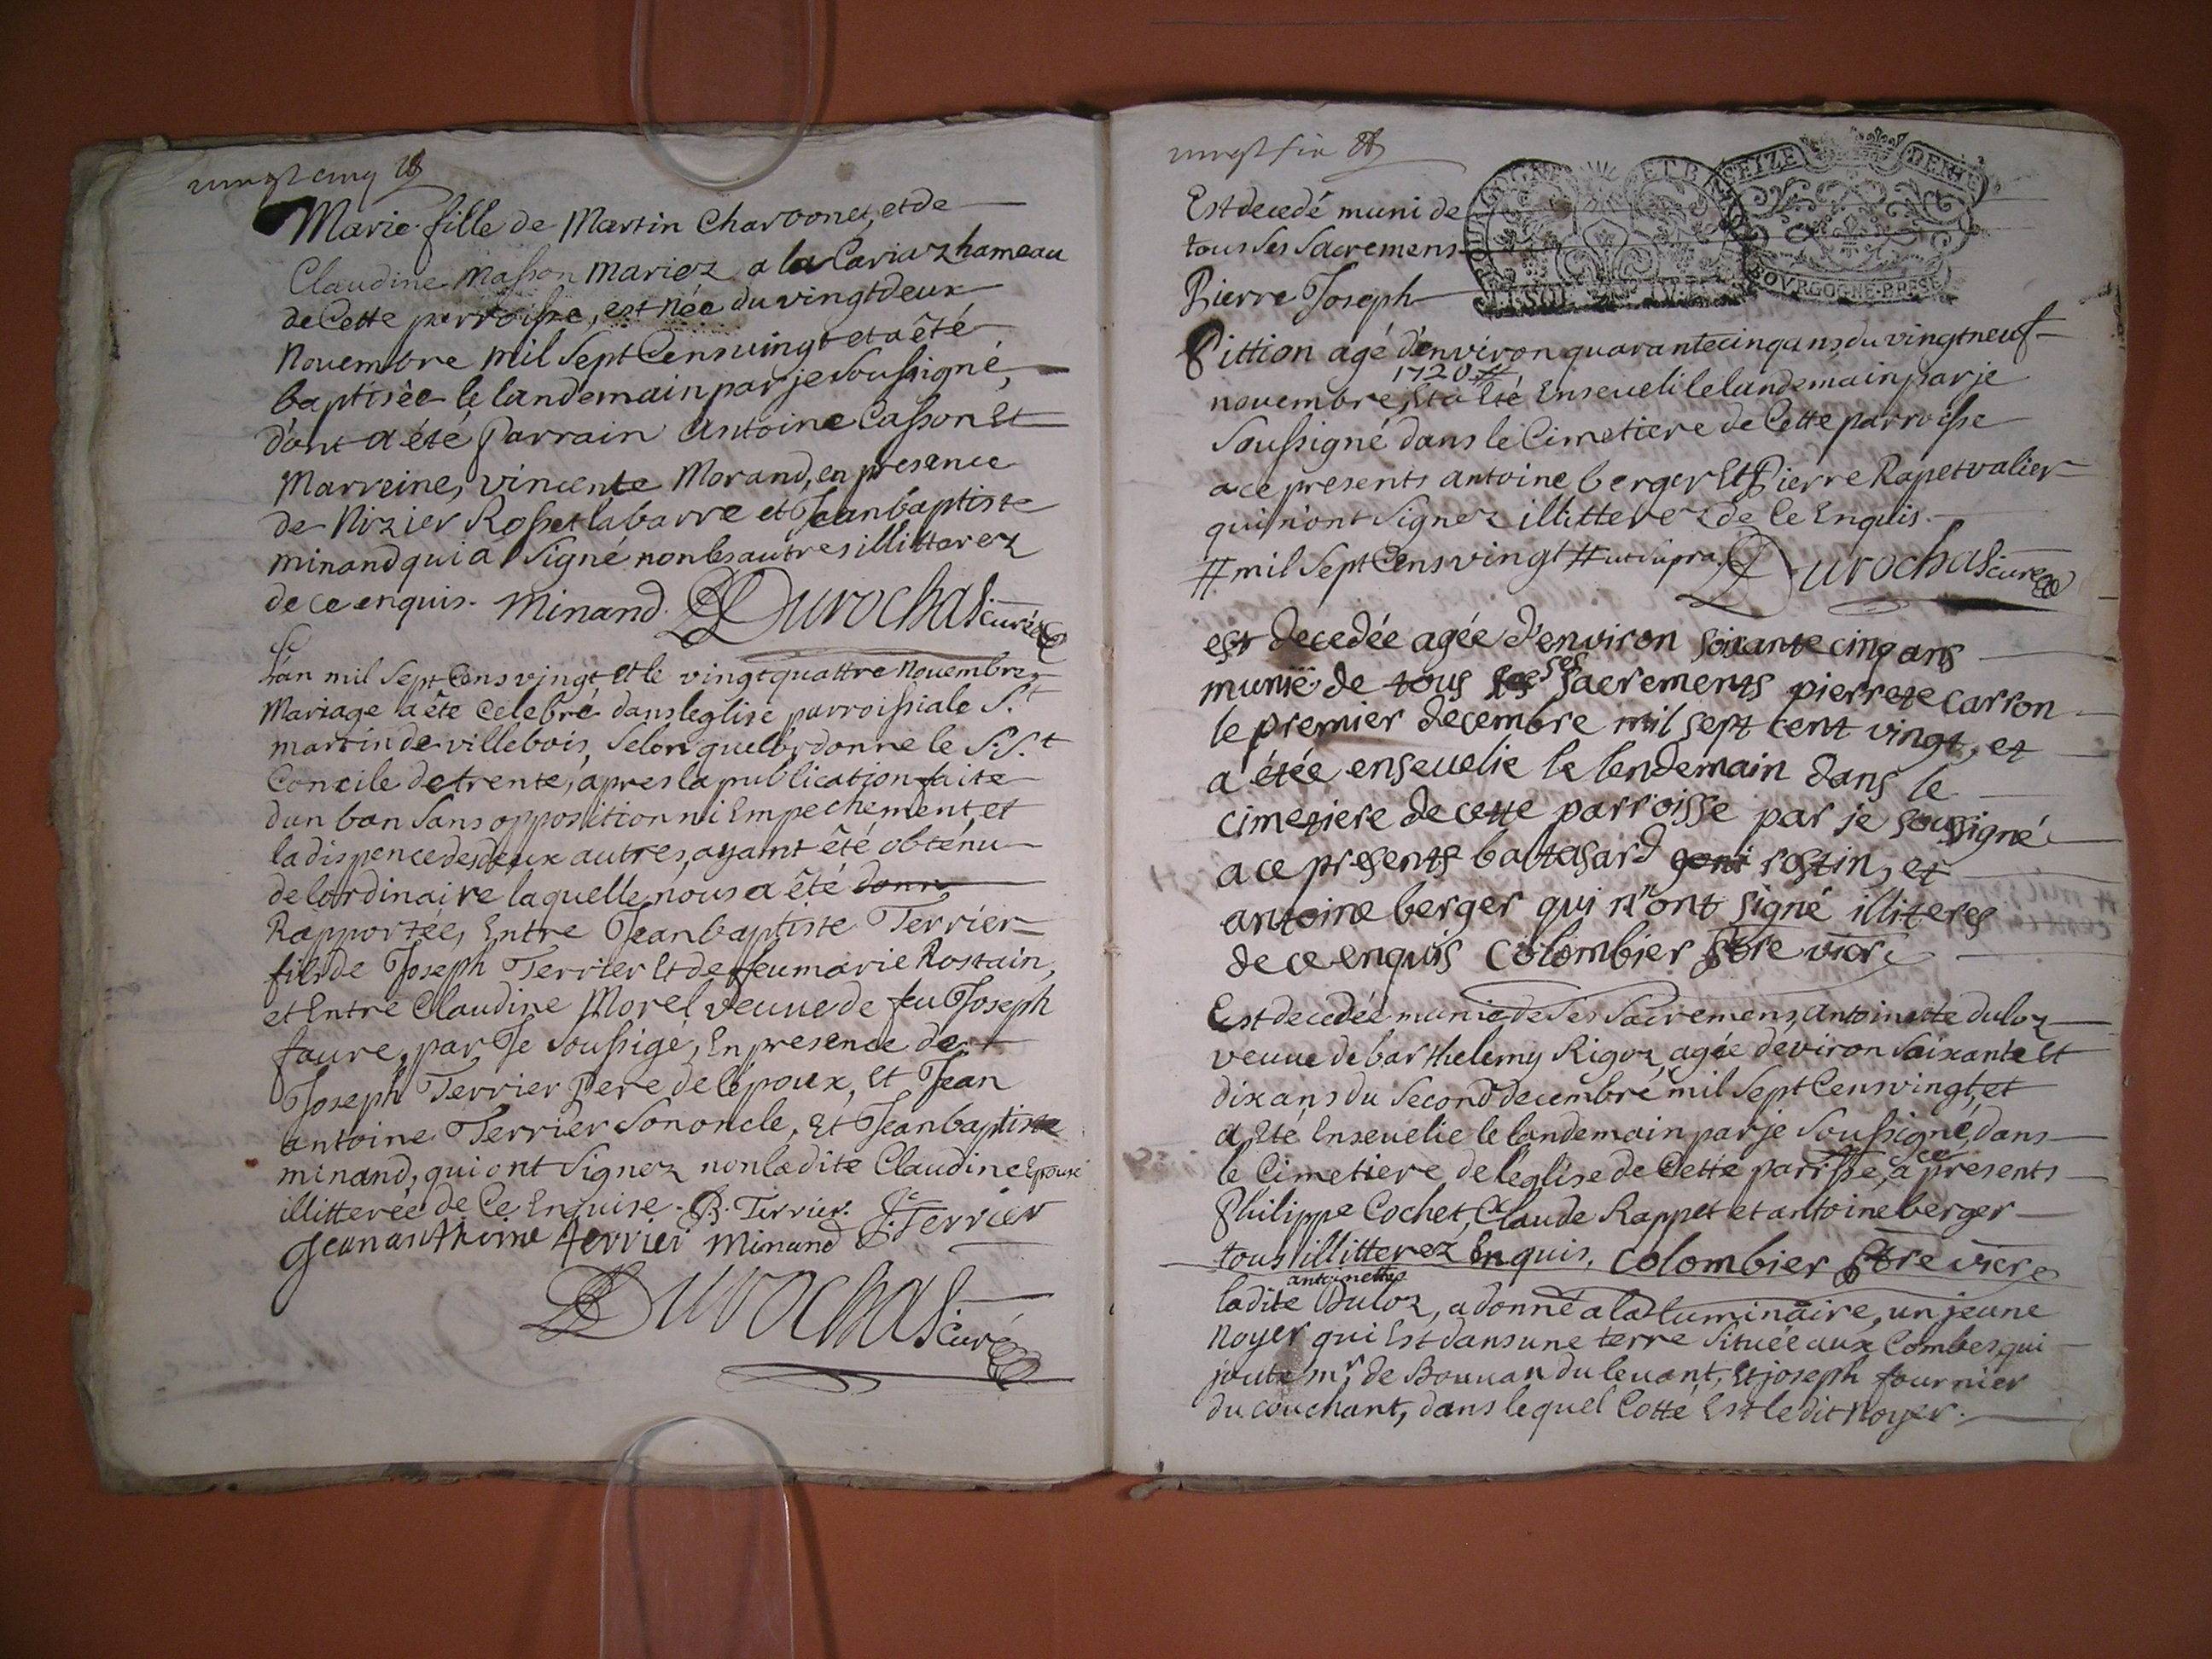 vingt cinq
Marie fille de Martin Charvonet, et de
Claudine Masson mariez a la Cariaz hameau
de Cette parroisse, est née du vingtdeux
Novembre mil Sept Cens vingt et a êté
baptisée le landemain par je Soussigné,
dont a été Parrain Antoine Casson Et
Marreine, vincente Morand, en presence
de Nizier Rosset labarre et Jean baptiste
minand qui a Signé non les autres illitterez
de ce enquis. Minand. Durochat curé
Lan mil Sept Cens vingt et le vingt quattre Novembre,
Mariage a êté Celebré dans leglise parroissiale S.t
martin de villebois, Selon que l'ordonne le S. S.t
Concile de trente, apres la publication faite
dun ban Sans opposition ni Empechement, et
la dispence des deux autres, ayant êté obtenu
de lordinaire laquelle nous a êté donn
Rapportée, Entre Jean baptiste Terrier
fils de Joseph Terrier Et de feu marie Rostain,
et Entre Claudine Morel veuve de feu Joseph
faure, par Je Soussigé, En presence de
Joseph Terrier Pere de lépoux, Et Jean
antoine Terrier Son oncle, Et Jean baptiste
minand, qui ont Signez non la dite Claudine Epouse
illitterée de Ce Enquise. B. Terrier. J. Terrier
Jean anthoine terrier Minand
Durochat curé
vingt six
Est decedé muni de
tous Ses Sacremens
Pierre Joseph
Pittion agé d'environ quarante cinq ans, du vingt neuf
1720 #
novembre, Et a Eté Enseveli le landemain par je
Soussigné dans le Cimetiere de Cette parroisse
a ce presents antoine berger Et Pierre Rapet valier
qui n'ont Signez illitterez de Ce Enquis.
# mil Sept Cens vingt # ut supra. Durochat curé
est decedée agée d'environ soixante cinq ans
munie de tous ses sacrements pierrete carron
le premier decembre mil sept cent vingt, et
a étée ensevelie le lendemain dans le
cimetiere de cette parroisse par je soussigné
a ce presents baltasard rostin, et
antoine berger qui n'ont signé illiteres
de ce enquis Colombier ptre vicre
Est decedée munie de Ses Sacremens, Antoinette duloz
veuve de barthelemy Rigoz, agée deviron Soixante Et
dix ans du Second decembre mil Sept Cens vingt, et
a Eté Ensevelie le landemain par je Soussigné, dans
le Cimetiere de leglise de Cette parisse, a ce presents
Philippe Cochet, Claude Rappet et antoine berger
tous illitterez Enquis, Colombier ptre vicre
antoinette
la dite Duloz, a donné a la Luminaire, un jeune
Noyer qui Est dans une terre Située aux Combes qui
joute mr. de Bouvan du levant, Et joseph fournier
du couchant, dans lequel Cotté Est le dit Noyer.